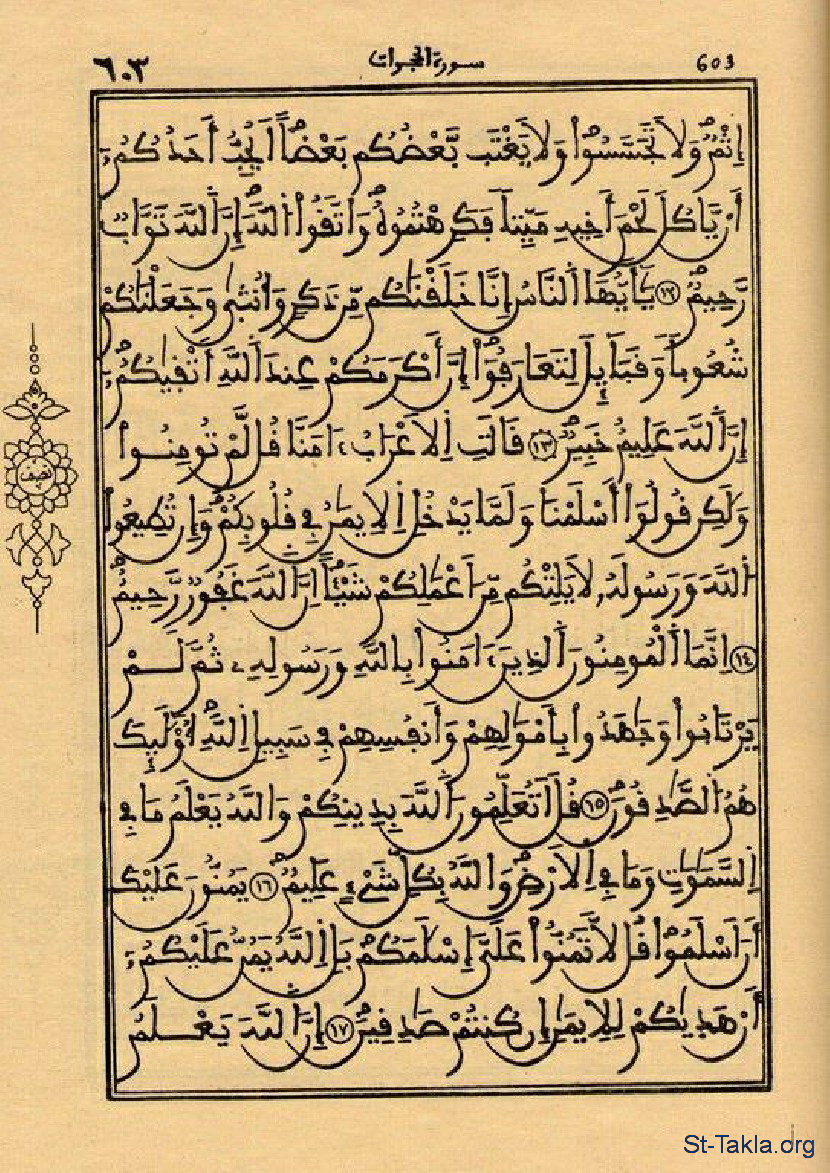 ٦٠٣ سورة الحجرات 603
إِثْمٌ وَلَا تَجَسَّسُوا۟ وَلَا يَغْتَب بَّعْضُكُم بَعْضاً اَيُحِبُّ أَحَدُكُمُۥٓ
أَنْ يَّاكُلَ لَحْمَ أَخِيهِ مَيِّتاً فَكَرِهْتُمُوهُ وَاتَّقُوا۟ اللَّهَ إِنَّ اَللَّهَ تَوَّابٌ
رَّحِيمٌ ١٢ يَٰٓأَيُّهَا اَلنَّاسُ إِنَّا خَلَقْنَٰكُم مِّن ذَكَرٍ وَأُنثَىٰ وَجَعَلْنَٰكُمْ
شُعُوباً وَقَبَآئِلَ لِتَعَارَفُوٓا۟ إِنَّ أَكْرَمَكُمْ عِندَ اَللَّهِ أَتْقَىٰكُمُۥٓ
إِنَّ اَللَّهَ عَلِيمٌ خَبِيرٌ ١٣ قَالَتِ اِلَاعْرَابُ ءَامَنَّا قُل لَّمْ تُومِنُوا۟
وَلَٰكِن قُولُوٓا۟ أَسْلَمْنَا وَلَمَّا يَدْخُلِ اِلِايمَٰنُ فِے قُلُوبِكُمْ وَإِن تُطِيعُوا۟
اَللَّهَ وَرَسُولَهُۥ لَا يَلِتْكُم مِّنَ اَعْمَٰلِكُمْ شَيْـًٔا اِنَّ اَللَّهَ غَفُورٌ رَّحِيمٌ
١٤ اِنَّمَا اَلْمُومِنُونَ اَلذِينَ ءَامَنُوا۟ بِاللَّهِ وَرَسُولِهِۦ ثُمَّ لَمْ
يَرْتَابُوا۟ وَجَٰهَدُوا۟ بِأَمْوَٰلِهِمْ وَأَنفُسِهِمْ فِے سَبِيلِ اِللَّهِ أُو۟لَٰٓئِكَ
هُمُ اُلصَّٰدِقُونَ ١٥ قُلَ اَتُعَلِّمُونَ اَللَّهَ بِدِينِكُمْ وَاللَّهُ يَعْلَمُ مَا فِے
اِلسَّمَٰوَٰتِ وَمَا فِے اِلَارْضِ وَاللَّهُ بِكُلِّ شَےْءٍ عَلِيمٌ ١٦ يَمُنُّونَ عَلَيْكَ
أَنَ اَسْلَمُوا۟ قُل لَّا تَمُنُّوا۟ عَلَىَّ إِسْلَٰمَكُم بَلِ اِللَّهُ يَمُنُّ عَلَيْكُمُۥٓ
أَنْ هَدَىٰكُمْ لِلِايمَٰنِ إِن كُنتُمْ صَٰدِقِينَ ١٧ إِنَّ اَللَّهَ يَعْلَمُ
نصف
St-Takla.org